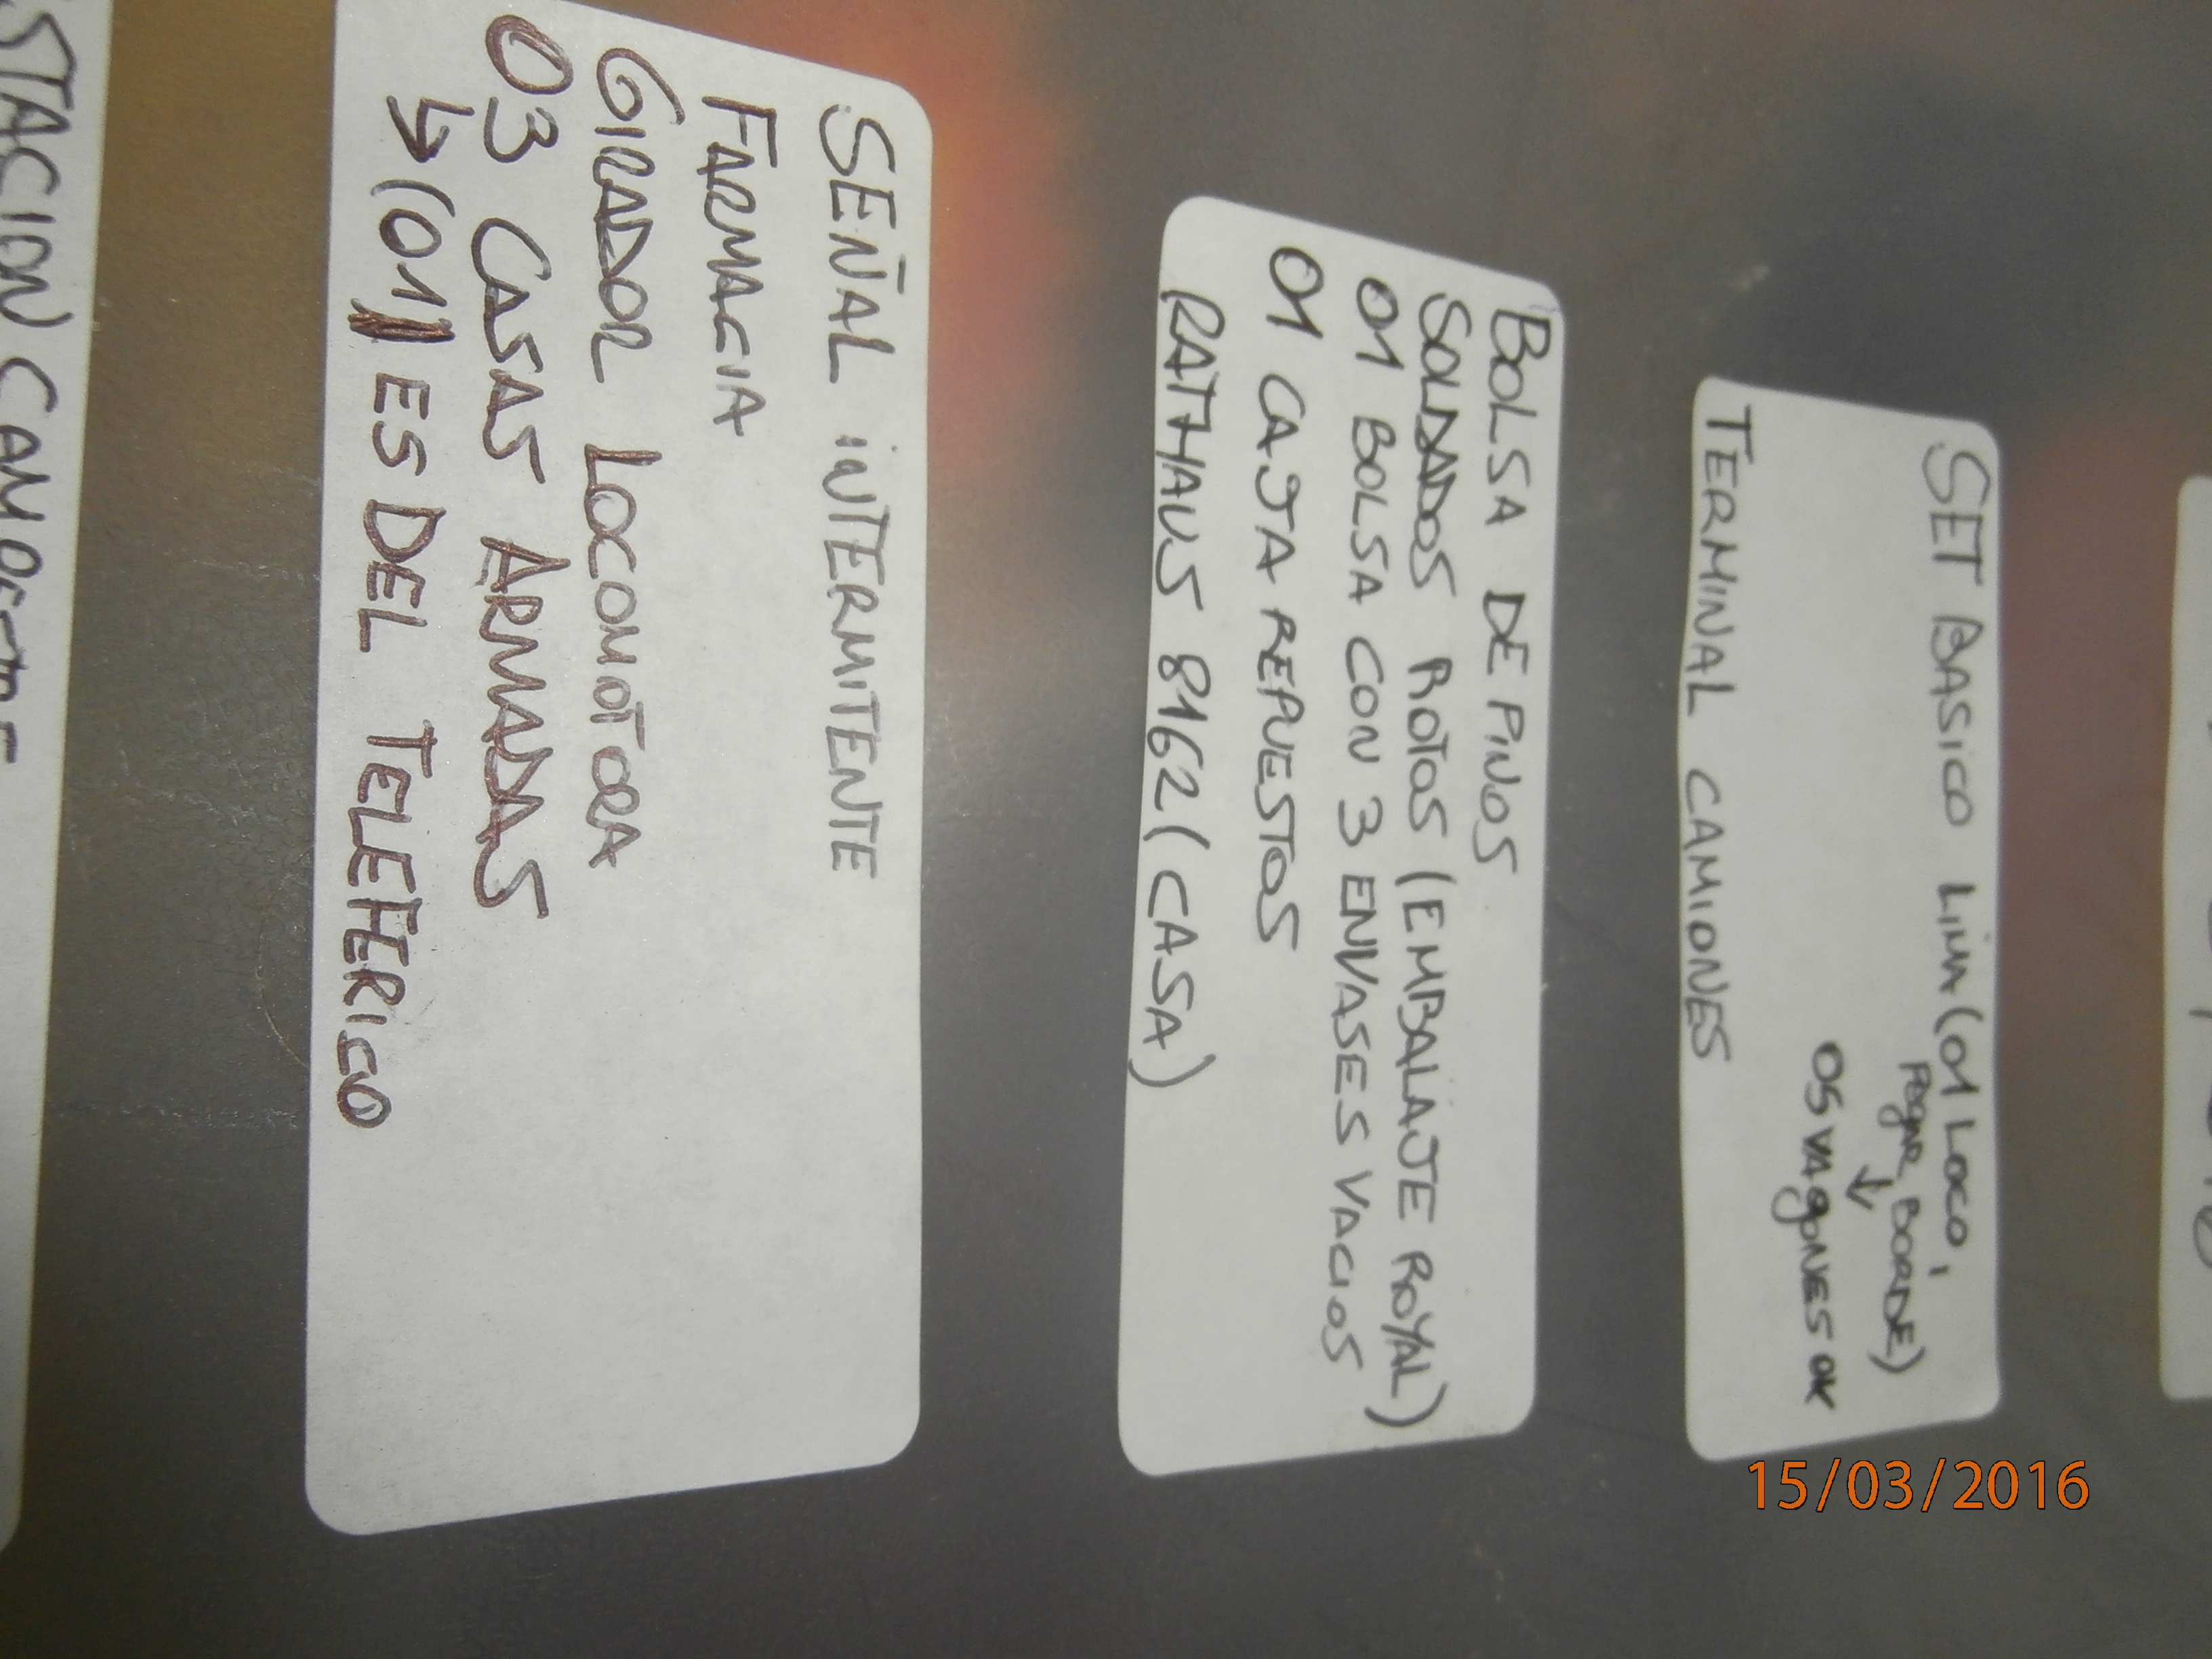 SET BASICO LIMA (01 LOCO,
PEGAR BORDE)
↓
05 VAGONES OK
TERMINAL CAMIONES
BOLSA DE PINOS
SOLDADOS ROTOS (EMBALAJE ROYAL)
01 BOLSA CON 3 ENVASES VACIOS
01 CAJA REPUESTOS
RATHAUS 8162 (CASA)
SEÑAL INTERMITENTE
FARMACIA
GIRADOR LOCOMOTORA
03 CASAS ARMADAS
↳ (01) ES DEL TELEFERICO
15/03/2016